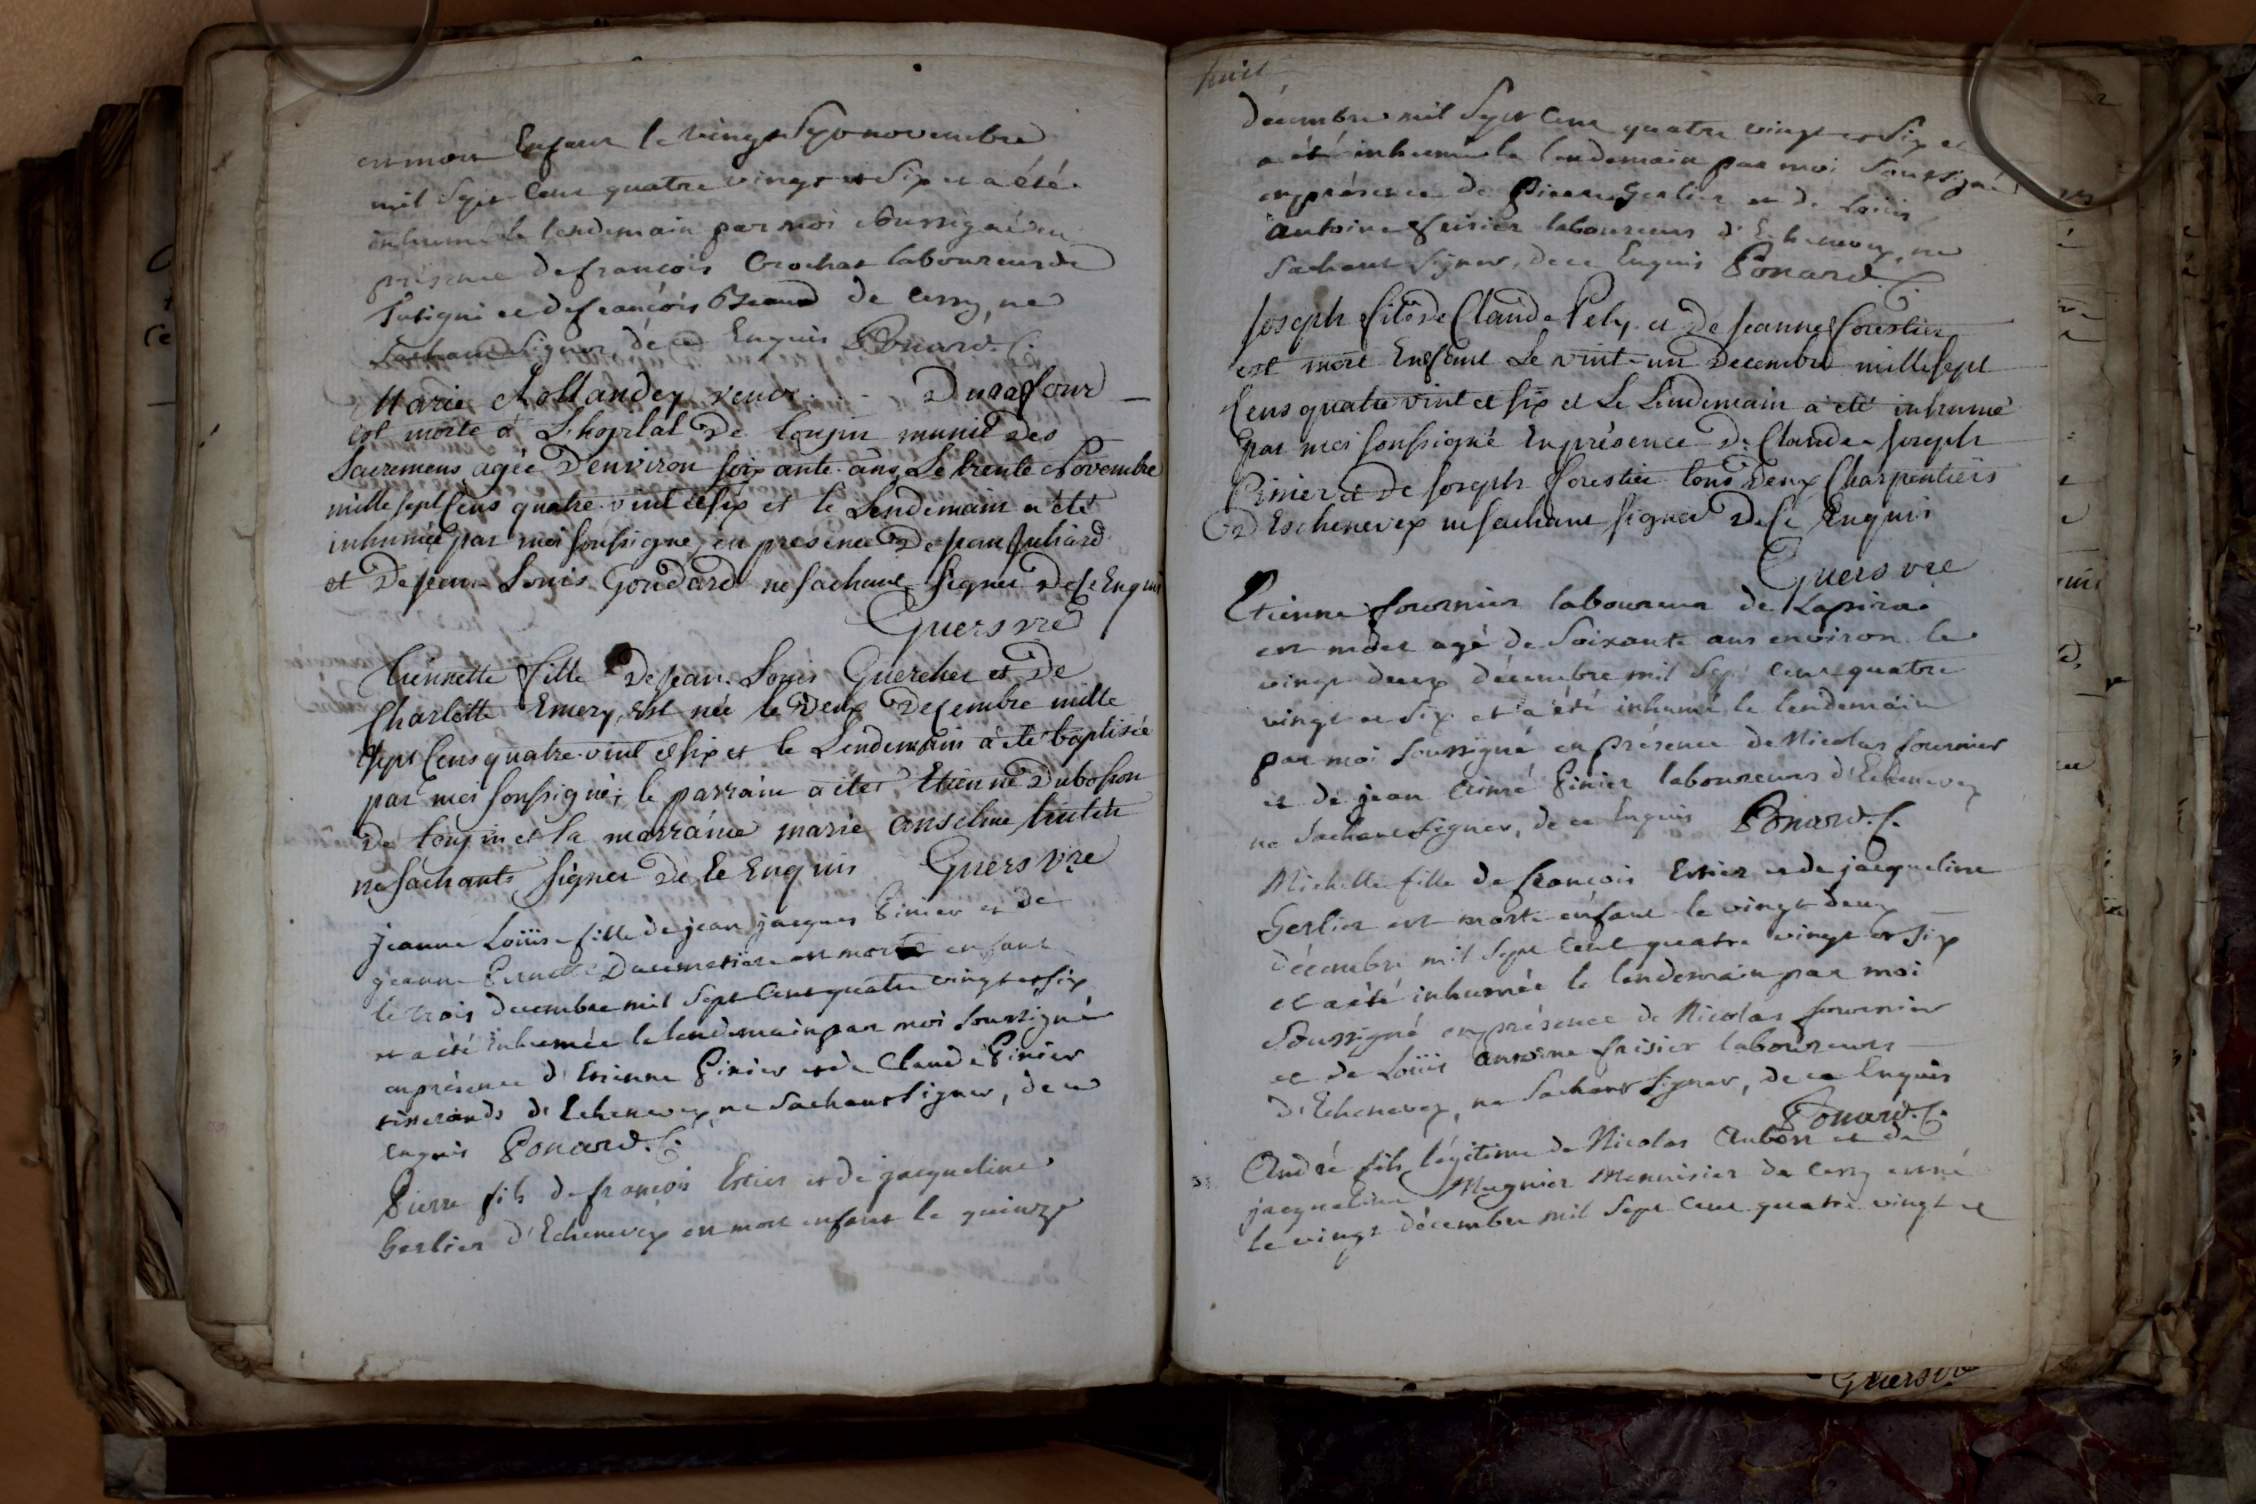 est mort Enfant le vingt Sept novembre
mil Sept Cent quatre vingt et Six et a été
inhumé le lendemain par moi Soussigné en
présence de françois Crochat laboureur de
et de françois de Cessy, ne
Sachant Signer, de ce Enquis Ponard. C.
Marie veuve . . . Dusafour —
est morte à L'hopital De tougin munie Des
Sacremens agée D'environ soixante ans, Le trente Novembre
mille sept Cens quatre-vint et six et le Lendemain a été
inhumée par moi soussigné, en presence De jean Juliard
et De jean Louis Goudard ne sachant Signer De Ce Enquis
Guers vre
tiennette fille De jean Louis Guerchet et De
Charlotte Emery, Est née le Deux Decembre mille
sept Cens quatre-vint et six et le Lendemain à été baptisée
par moi soussigné; le parrain a été Etienne Dubosson
De tougin et la marraine marie anseline
ne sachants signer De Ce Enquis Guers vre
jeanne Loüise fille de jean jacques Pinier et de
jeanne est morte enfant
le trois decembre mil Sept Cent quatre vingt et Six
et a été inhumée le lendemain par moi Soussigné
en présence d'Etienne Pinier et de Claude Pinier
tisserands d'Echenevex ne Sachant Signer, de ce
enquis Ponard. C.
Pierre fils de françois Estier et de jacqueline
Gerlier d'Echenevex est mort enfant le quinze
huit
décembre mil Sept Cent quatre vingt et Six et
a été inhumé le lendemain par moi Soussigné
en présence de Pierre Gerlier et de Loüis
Antoine frisier laboureurs d'Echenevex, ne
Sachant Signer, de ce Enquis Ponard. C.
Joseph fils De Claude Pely et De jeanne forestier
est mort Enfant Le vint-un Decembre mille sept
Cens quatre vint et six et Le Lendemain à été inhumé
par moi soussigné En présence De Claude-Joseph
Pinier et De Joseph forestier tous Deux Charpentiers
D'Eschenevex ne sachant signer De Ce Enquis
Guers vre
Etienne fournier laboureur de
est mort agé de Soixante ans environ le
vingt deux décembre mil Sept Cent quatre
vingt et Six et a été inhumé le lendemain
par moi Soussigné en présence de Nicolas fournier
et de jean Aimé Pinier laboureurs d'Echenevex
ne Sachant Signer, de ce Enquis Ponard. C.
Michelle fille de françois Estier et de jacqueline
Gerlier est morte enfant le vingt deux
décembre mil Sept Cent quatre vingt et Six
et a été inhumée le lendemain par moi
Soussigné en présence de Nicolas fournier
et de Loüis Antoine frisier laboureurs
d'Echenevex, ne Sachant Signer, de ce Enquis
Ponard. C.
André fils légitime de Nicolas Aubert et de
jacqueline Mugnier Menuisier de Cessy est né
le vingt décembre mil Sept Cent quatre vingt et
Guers vre